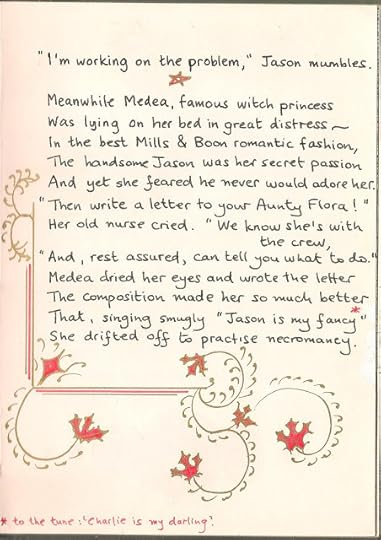 "I'm working on the problem," Jason mumbles.
Meanwhile Medea, famous witch princess
Was lying on her bed in great distress ~
In the best Mills & Boon romantic fashion,
The handsome Jason was her secret passion
And yet she feared he never would adore her.
"Then write a letter to your Aunty Flora!"
Her old nurse cried. "We know she's with
the crew,
"And, rest assured, can tell you what to do."
Medea dried her eyes and wrote the letter
The composition made her so much better
That, singing smugly "Jason is my fancy*"
She drifted off to practise necromancy.
* to the tune: 'Charlie is my darling'.